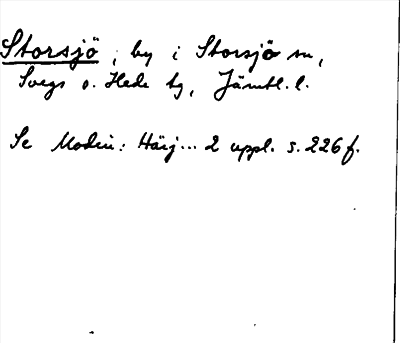 Storsjö, by i Storsjö sn,
Svegs o. Hede tg, Jämtl. l.
Se Modin: Härj... 2 uppl. s. 226 f.